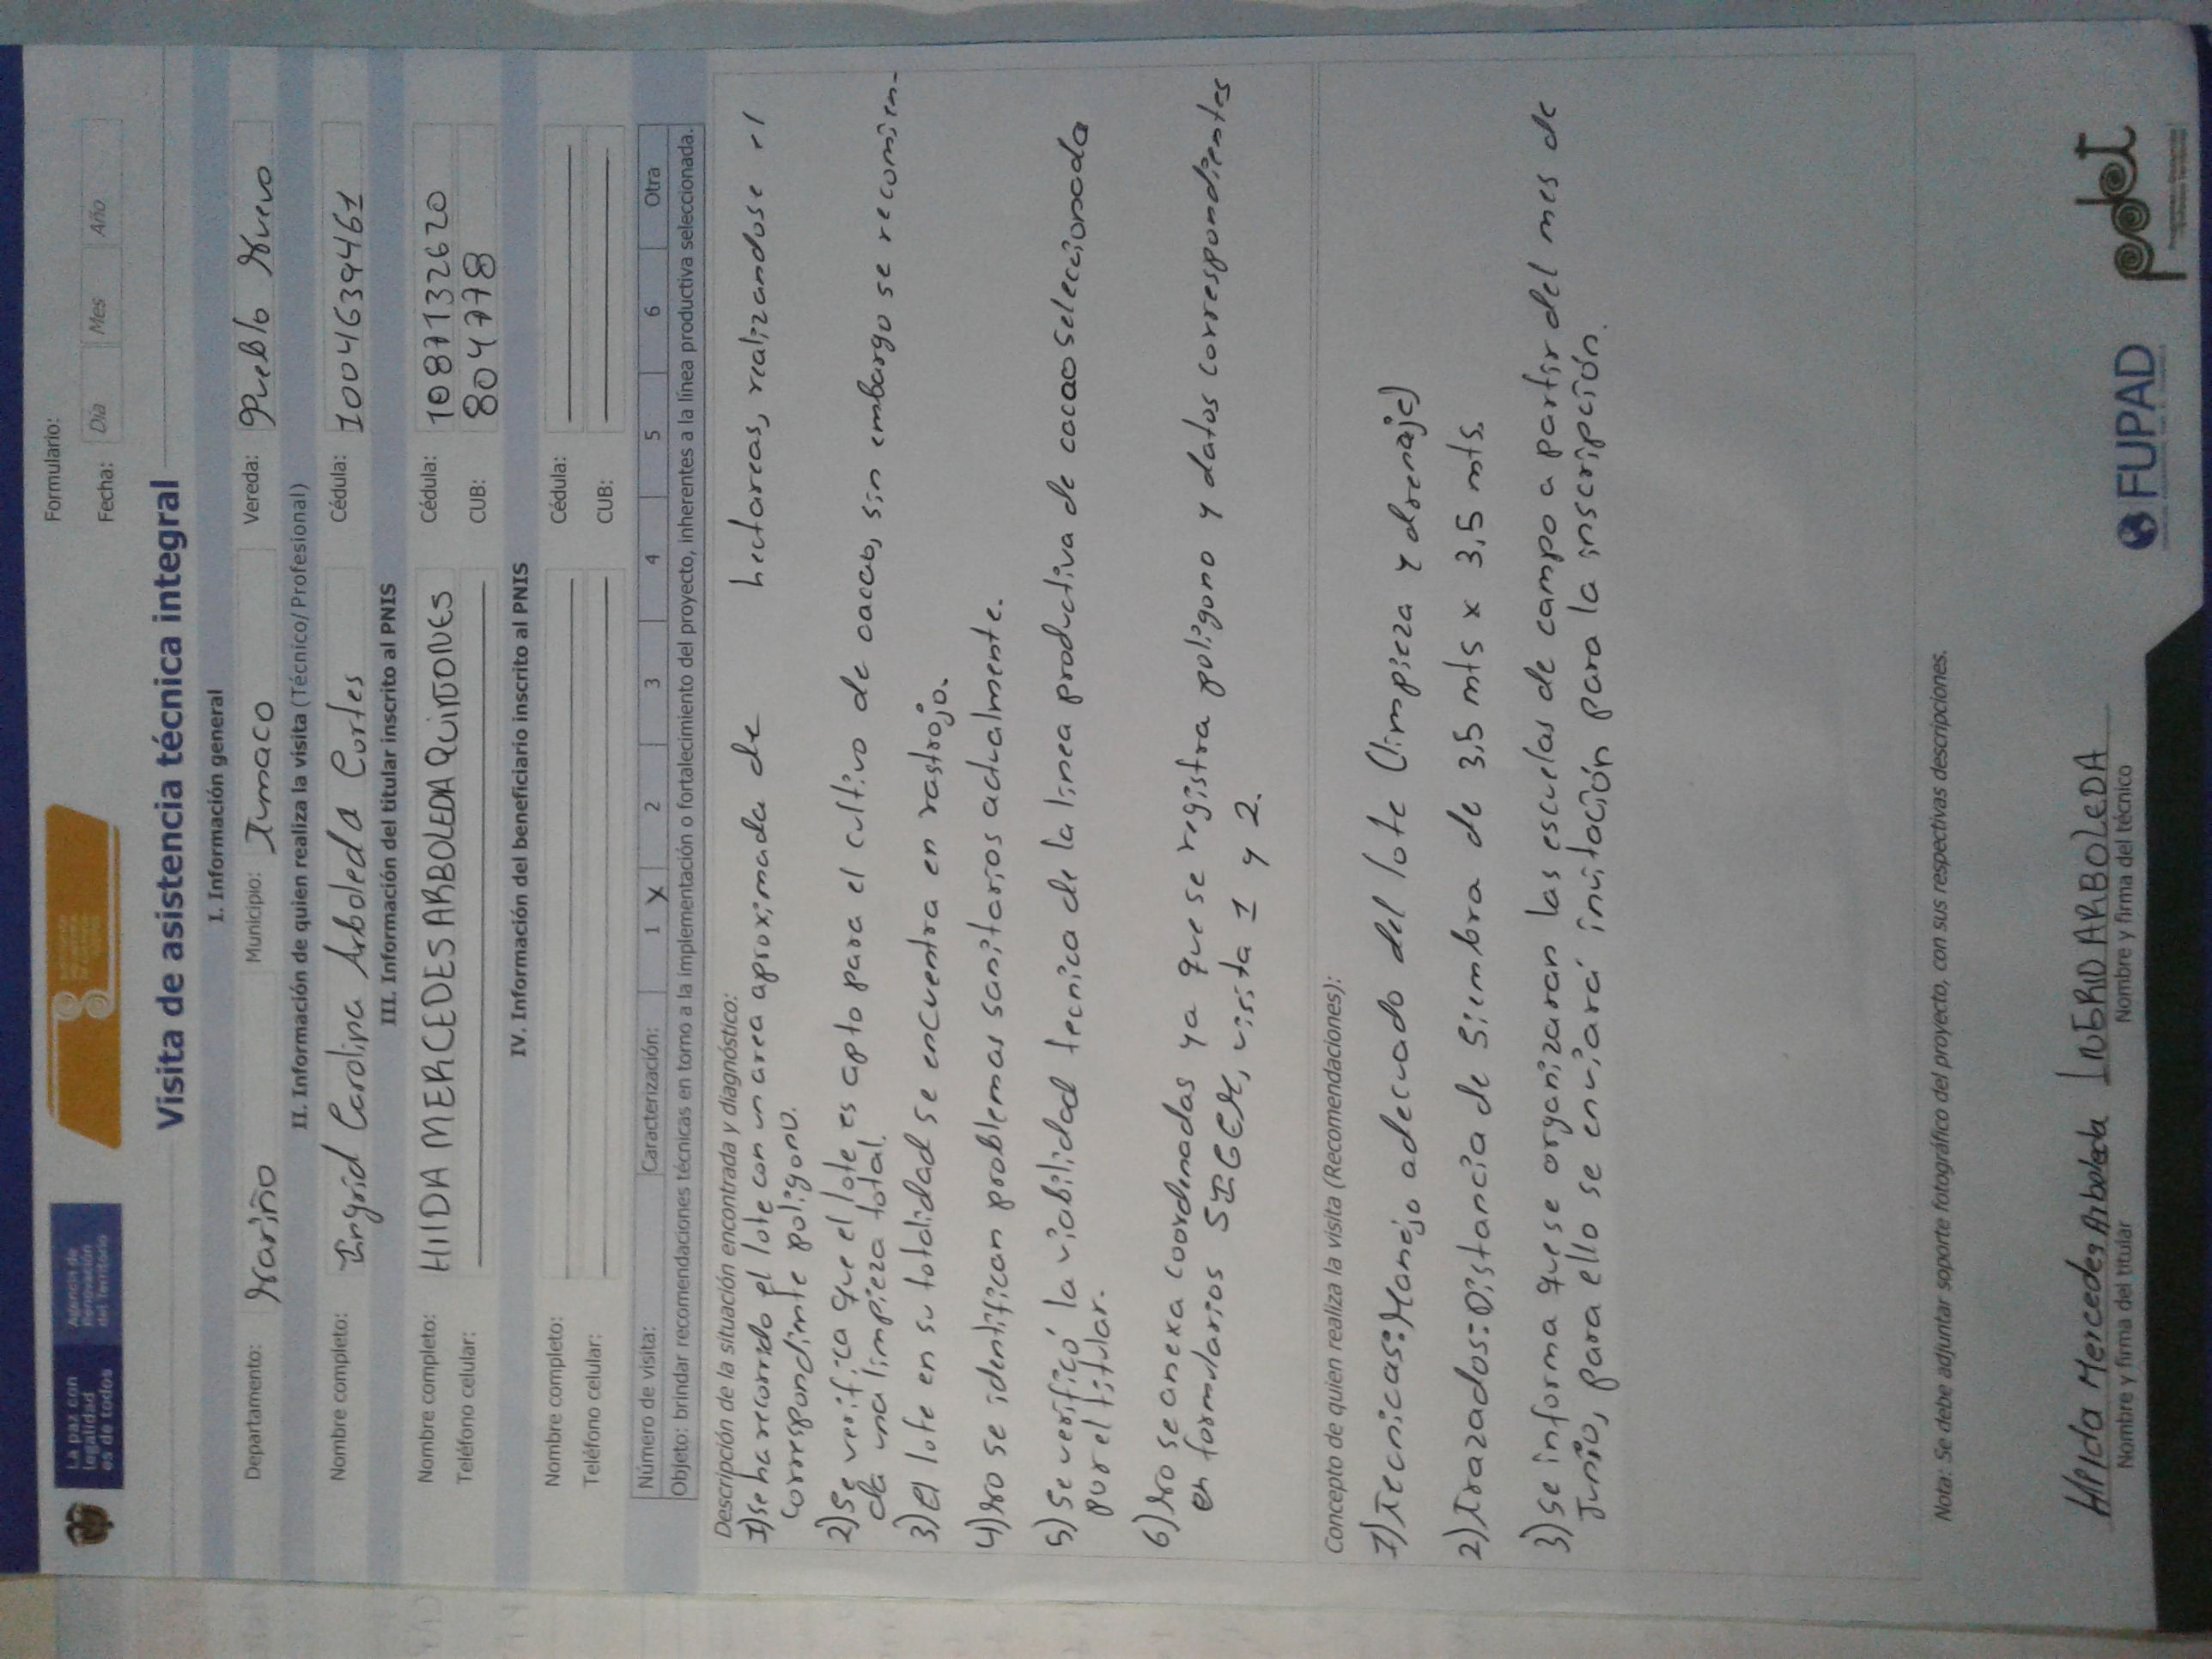 La paz con
legalidad
es de todos
Agencia de
Renovación
del Territorio
Formulario:
Fecha: Día Mes Año
Visita de asistencia técnica integral
I. Información general
Departamento: Nariño Municipio: Tumaco Vereda: Pueblo Nuevo
II. Información de quien realiza la visita (Técnico/ Profesional)
Nombre completo: Ingrid Carolina Arboleda Cortes Cédula: 1004639461
III. Información del titular inscrito al PNIS
Nombre completo: HIlDA MERCEDES ARBOLEDA QUIÑONES Cédula: 1087132620
Teléfono celular: CUB: 8047778
IV. Información del beneficiario inscrito al PNIS
Nombre completo: Cédula:
Teléfono celular: CUB:
Número de visita: Caracterización: 1 X 2 3 4 5 6 Otra
Objeto: brindar recomendaciones técnicas en torno a la implementación o fortalecimiento del proyecto, inherentes a la línea productiva seleccionada.
Descripción de la situación encontrada y diagnóstico:
1) se ha recorrido el lote con un area aproximada de hectareas, realizandose el
correspondimte poligono.
2) Se verifica que el lote es apto para el cultivo de cacao, sin embargo se recomien-
da una limpieza total.
3) el lote en su totalidad se encuentra en rastrojo.
4) No se identifican problemas sanitarios actualmente.
5) Se verificó la viabilidad tecnica de la linea productiva de cacao seleccionada
por el titular.
6) No se anexa coordenadas ya que se registra poligono y datos correspondientes
en formularios SIGER, visita 1 y 2.
Concepto de quien realiza la visita (Recomendaciones):
1) Tecnicas: Manejo adecuado del lote (limpieza y drenaje)
2) Trazados: Distancia de Siembra de 3,5 mts x 3,5 mts.
3) Se informa que se organizaran las escuelas de campo a partir del mes de
Junio, para ello se enviará invitación para la inscripción.
Nota: Se debe adjuntar soporte fotográfico del proyecto, con sus respectivas descripciones.
HIlda Mercedes Arboleda INGRID ARBOLEDA
Nombre y firma del titular Nombre y firma del técnico
FUPAD
pdet